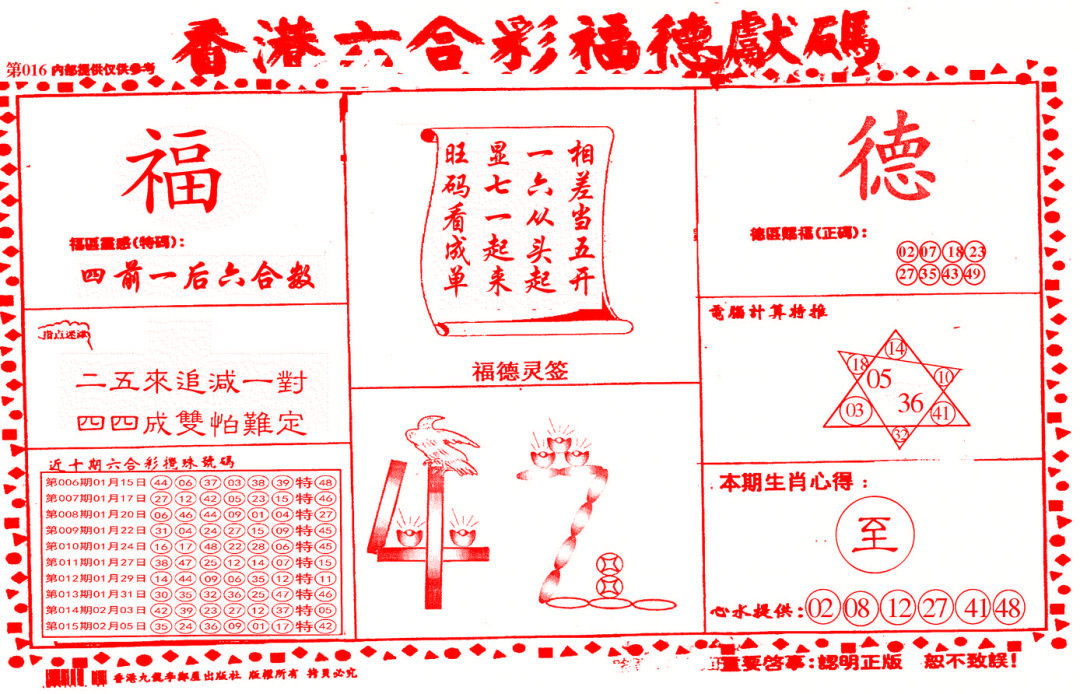 香港六合彩福德獻碼
第016 内部提供仅供参考
福
福區靈感(特碼):
四前一后六合数
指点迷津
二五來追減一對
四四成雙怕難定
近十期六合彩攪珠號碼
第006期01月15日 44 06 37 03 38 39 特 48
第007期01月17日 27 12 42 05 23 15 特 46
第008期01月20日 06 46 44 09 01 04 特 27
第009期01月22日 31 04 24 27 15 09 特 45
第010期01月24日 16 17 48 22 28 06 特 45
第011期01月27日 38 47 25 12 14 07 特 15
第012期01月29日 14 44 09 06 35 12 特 11
第013期01月31日 30 35 32 36 25 47 特 46
第014期02月03日 42 39 23 27 12 37 特 05
第015期02月05日 35 24 36 09 01 17 特 42
相差当五开
一六从头起
显七一起来
旺码看成单
福德灵签
德
德區賜福(正碼):
02 07 18 23
27 35 43 49
電腦計算特推
14
18 10
05
36
03 41
32
本期生肖心得:
至
心水提供: 02 08 12 27 41 48
香港九龍李鄭屋出版社 版權所有 拷貝必究
重要啓事:認明正版 恕不致誤!